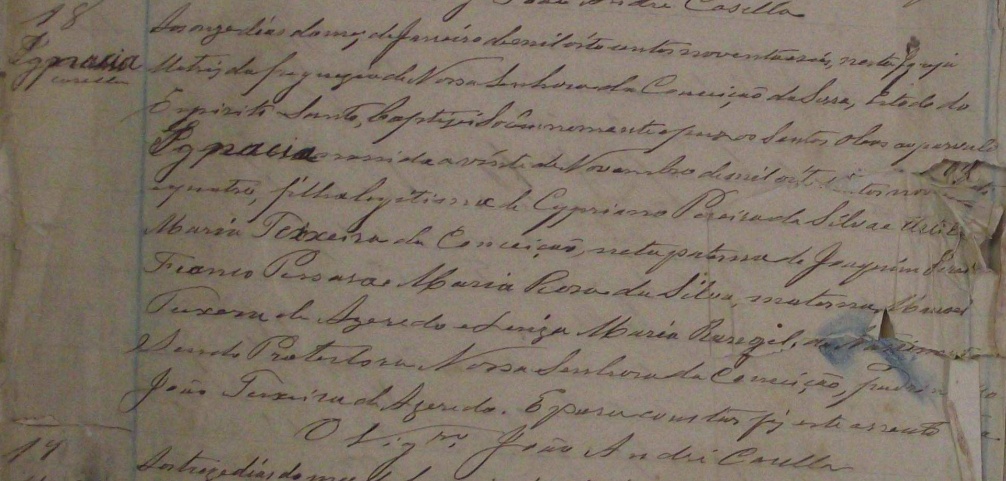 João André Casella
18
Ignacia
Aos onze dias do mez de Janeiro de mil oito centos noventa e seis, nesta Igreja
Matriz da freguezia de Nossa Senhora da Conceição da Serra, Estado do
Espirito Santo, baptizei Solemnemente e puz os Santos Oleos a parvul
Ignacia nascida a vinte de Novembro de mil oito centos nov
e quatro, filha legitima de Cypriano Pereira da Silva e
Maria Teixeira da Conceição, neta paterna de Joaquim
Franco e Maria Rosa da Silva, materna Manoel
Teixeira de Azeredo e Luiza Maria Rangel, do
Sendo Protectora Nossa Senhora da Conceição, padrin
João Teixeira de Azeredo. E para constar fiz este assento
O Vigrº João André Casella
19
Aos treze dias do mez